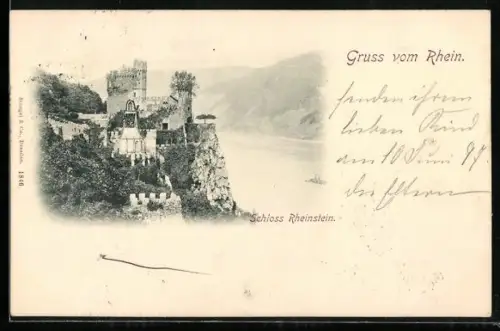 Gruss vom Rhein.
senden ihrem
lieben Kind
am 10 Juni 98
die Eltern
Schloss Rheinstein.
Stengel & Co., Dresden. 1846